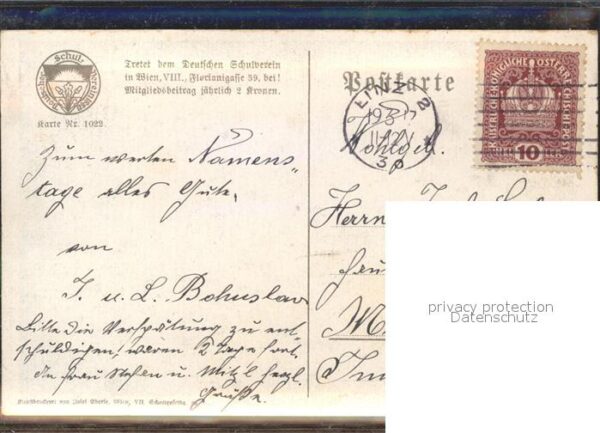 Schul
Tretet dem Deutschen Schulverein
in Wien, VIII., Florianigasse 39, bei!
Mitgliedsbeitrag jährlich 2 Kronen.
Karte Nr. 1022.
Postkarte
LINZ 2
KAISERLICHE KÖNIGLICHE ÖSTERREICHISCHE POST
10
Zum werten Namens-
tage alles Gute,
von
J. u. L. Bohuslav
Bitte die Verspätung zu ent-
schuldigen! waren 2 Tage fort.
An Frau u. Mitzl herzl.
Grüße.
Wohlgeb.
Herrn
privacy protection
Datenschutz
Kunstdruckerei von Josef Eberle, Wien, VII. Schottenfeldg.